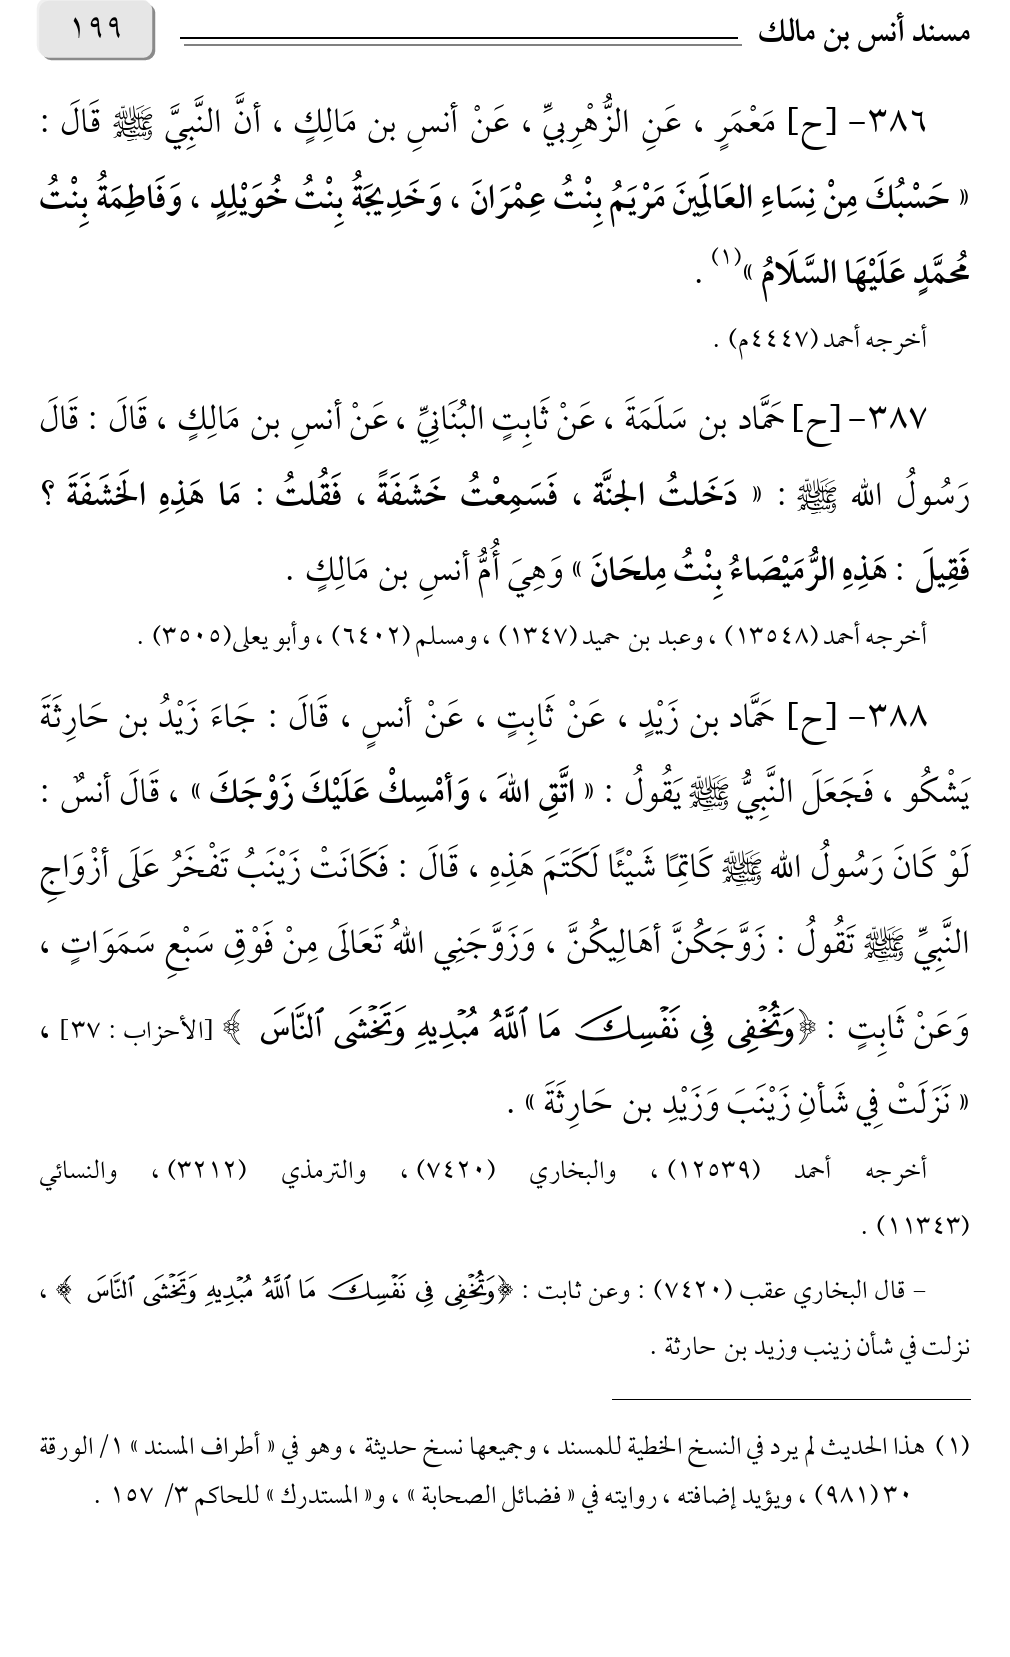 مسند أنس بن مالك ١٩٩
٣٨٦- [ح] مَعْمَرٍ ، عَنِ الزُّهْرِيِّ ، عَنْ أنسِ بن مَالِكٍ ، أنَّ النَّبِيَّ ﷺ قَالَ :
« حَسْبُكَ مِنْ نِسَاءِ العَالَمِينَ مَرْيَمُ بِنْتُ عِمْرَانَ ، وَخَدِيجَةُ بِنْتُ خُوَيْلِدٍ ، وَفَاطِمَةُ بِنْتُ
مُحمَّدٍ عَلَيْهَا السَّلَامُ »(١) .
أخرجه أحمد (٤٤٤٧م) .
٣٨٧- [ح] حَمَّاد بن سَلَمَةَ ، عَنْ ثَابِتٍ البُنَانِيِّ ، عَنْ أنسِ بن مَالِكٍ ، قَالَ : قَالَ
رَسُولُ الله ﷺ : « دَخَلتُ الجنَّة ، فَسَمِعْتُ خَشَفَةً ، فَقُلتُ : مَا هَذِهِ الخَشَفَةَ ؟
فَقِيلَ : هَذِهِ الرُّمَيْصَاءُ بِنْتُ مِلحَانَ » وَهِيَ أُمُّ أنسِ بن مَالِكٍ .
أخرجه أحمد (١٣٥٤٨) ، وعبد بن حميد (١٣٤٧) ، ومسلم (٦٤٠٢) ، وأبو يعلى(٣٥٠٥) .
٣٨٨- [ح] حَمَّاد بن زَيْدٍ ، عَنْ ثَابِتٍ ، عَنْ أنسٍ ، قَالَ : جَاءَ زَيْدُ بن حَارِثَةَ
يَشْكُو ، فَجَعَلَ النَّبِيُّ ﷺ يَقُولُ : « اتَّقِ اللهَ ، وَأمْسِكْ عَلَيْكَ زَوْجَكَ » ، قَالَ أنسٌ :
لَوْ كَانَ رَسُولُ الله ﷺ كَاتِمًا شَيْئًا لَكَتَمَ هَذِهِ ، قَالَ : فَكَانَتْ زَيْنَبُ تَفْخَرُ عَلَى أزْوَاجِ
النَّبِيِّ ﷺ تَقُولُ : زَوَّجَكُنَّ أهَالِيكُنَّ ، وَزَوَّجَنِي اللهُ تَعَالَى مِنْ فَوْقِ سَبْعِ سَمَوَاتٍ ،
وَعَنْ ثَابِتٍ : ﴿وَتُخْفِى فِى نَفْسِكَ مَا ٱللَّهُ مُبْدِيهِ وَتَخْشَى ٱلنَّاسَ ﴾ [الأحزاب : ٣٧] ،
« نَزَلَتْ فِي شَأنِ زَيْنَبَ وَزَيْدِ بن حَارِثَةَ » .
أخرجه أحمد (١٢٥٣٩) ، والبخاري (٧٤٢٠) ، والترمذي (٣٢١٢) ، والنسائي
(١١٣٤٣) .
– قال البخاري عقب (٧٤٢٠) : وعن ثابت : ﴿وَتُخْفِى فِى نَفْسِكَ مَا ٱللَّهُ مُبْدِيهِ وَتَخْشَى ٱلنَّاسَ ﴾ ،
نزلت في شأن زينب وزيد بن حارثة .
(١) هذا الحديث لم يرد في النسخ الخطية للمسند ، وجميعها نسخ حديثة ، وهو في « أطراف المسند » ١/ الورقة
٣٠ (٩٨١) ، ويؤيد إضافته ، روايته في « فضائل الصحابة » ، و« المستدرك » للحاكم ٣/ ١٥٧ .